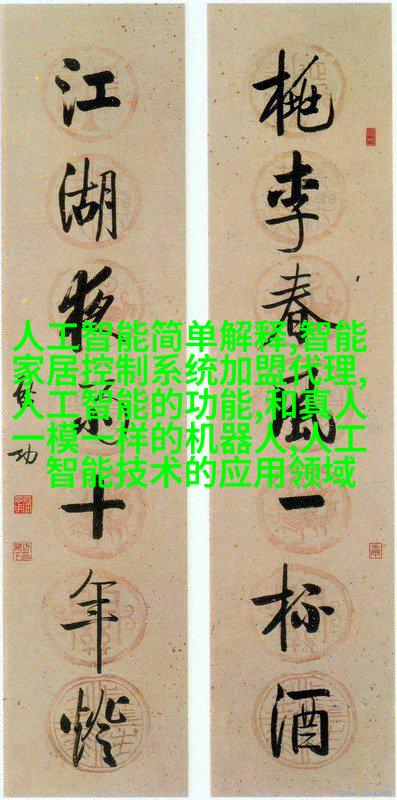 桃李春風一杯酒
江湖夜雨十年燈
啓功
人工智能简单解释,智能
家居控制系统加盟代理,
人工智能的功能,和真人
一模一样的机器人,人工
智能技术的应用领域